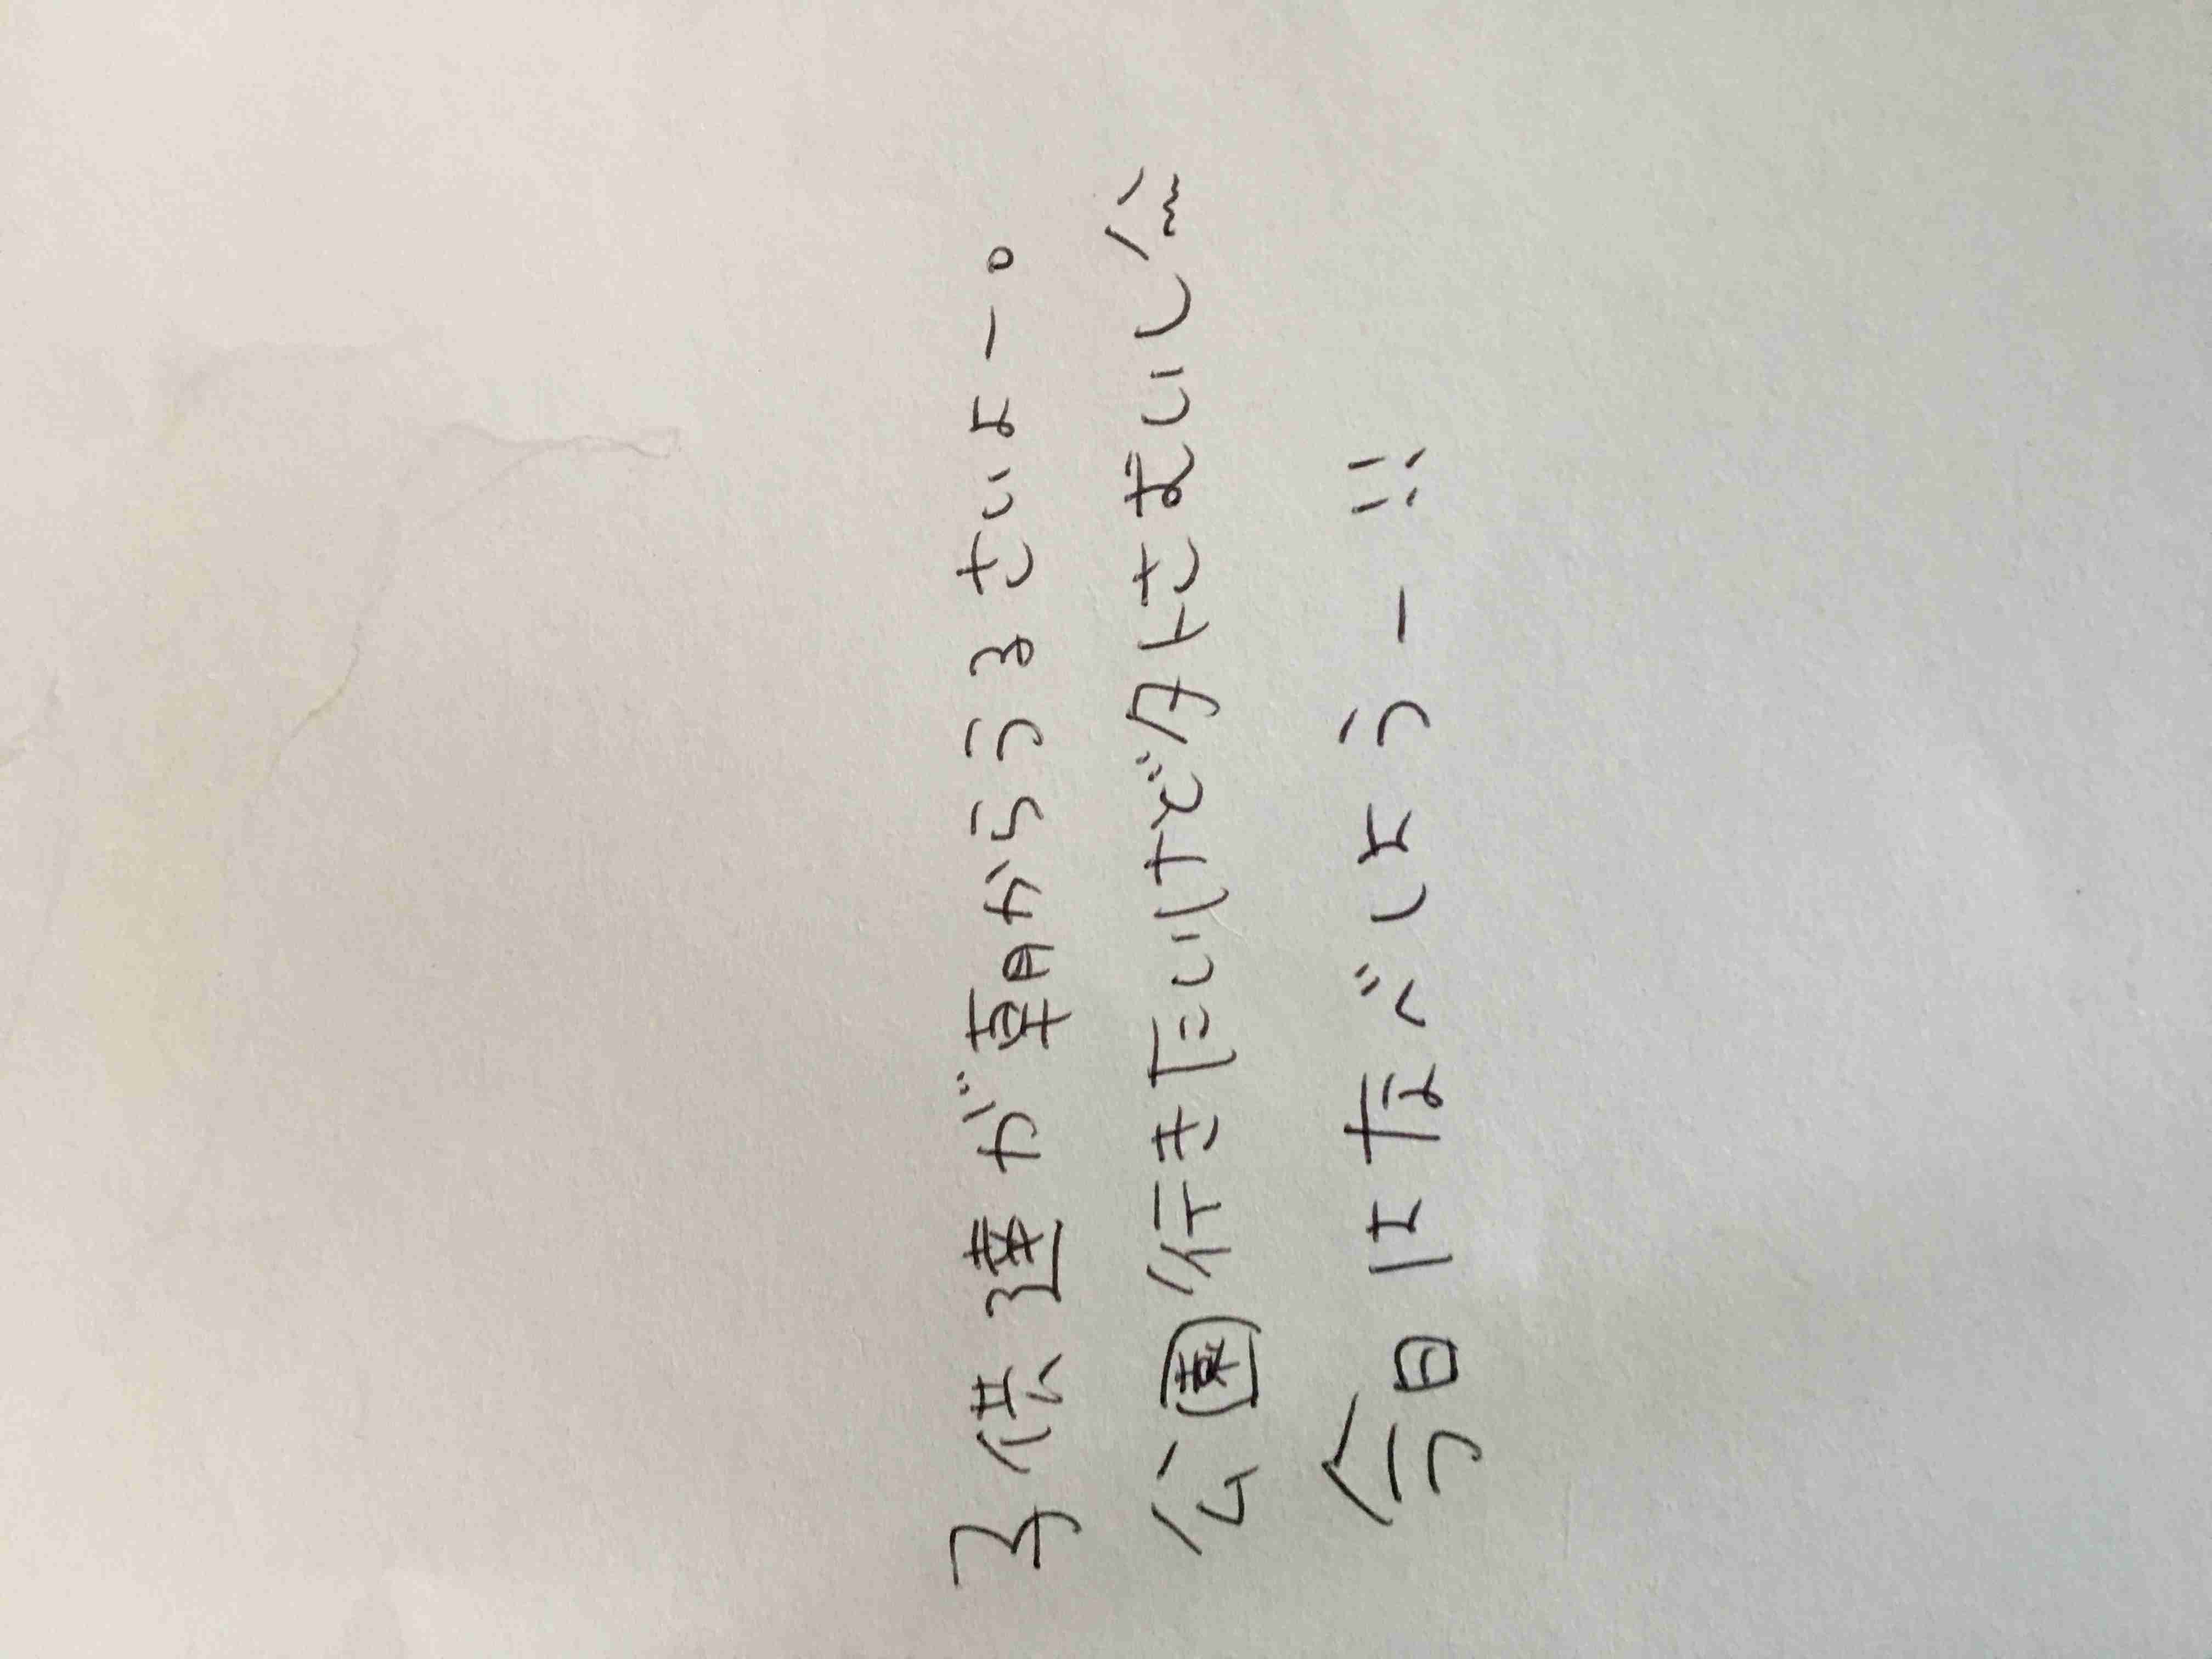 子供達が朝からうるさいよー。
公園行きたいけど外さむいし
今日はなべしようー!!